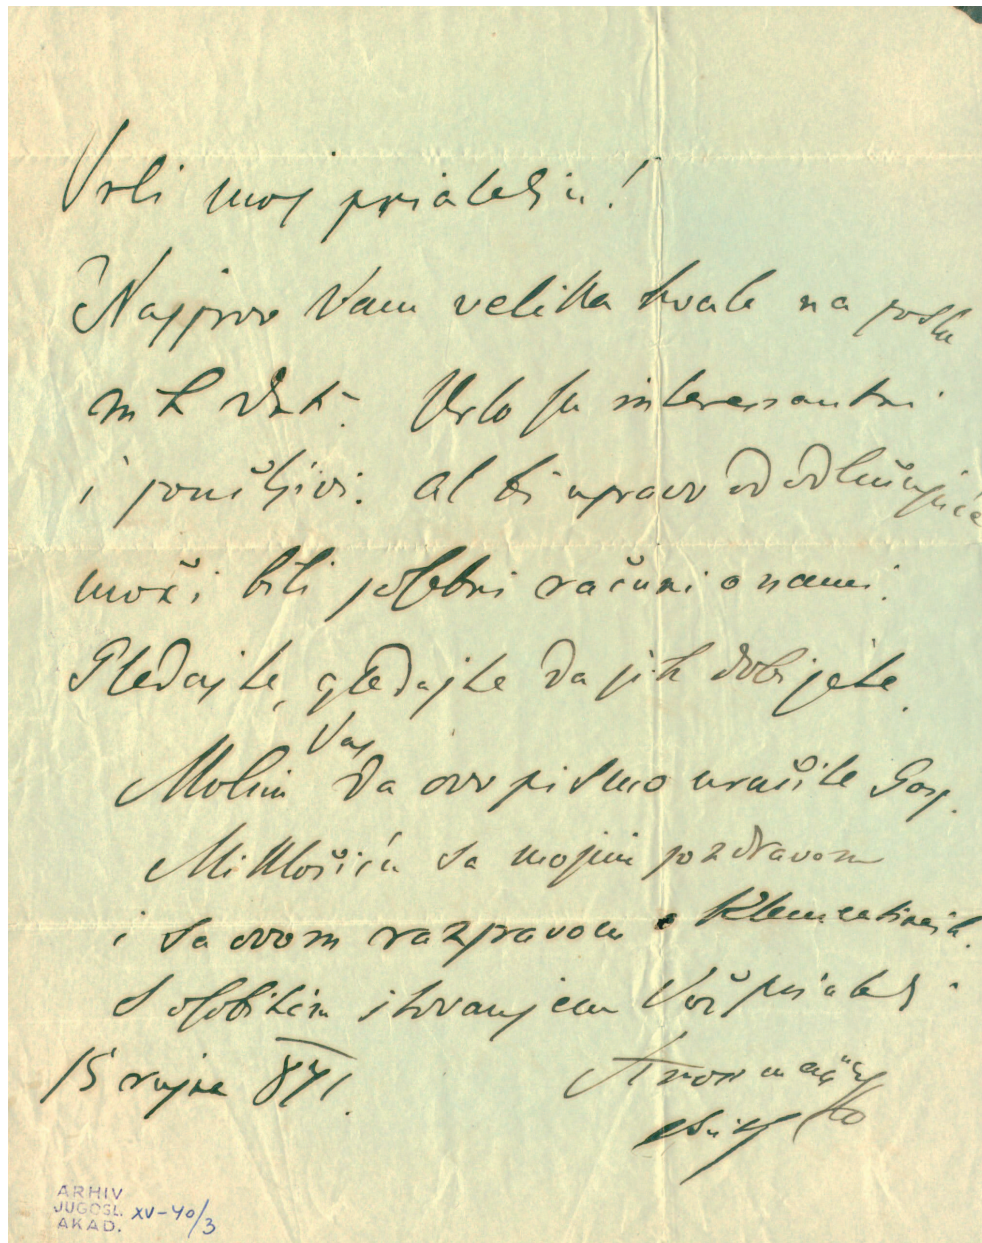 Vrli moj priatelju!
Najprvo Vam velika hvala na posla
Vrlo su interessantni
i poučljivi. Al bi upravo od odlučujuće
moći bili posebni računi o nami.
Gledajte, gledajte da jih dobijete.
Vas
Molim da ovo pismo uručite Gosp.
Miklošiću sa mojim pozdravom
i sa ovom razpravom o Klementinah.
S osobitim štovanjem Vaš priatelj
15 rujna 871.
Strossmayer
ARHIV
JUGOSL. XV-40/3
AKAD.